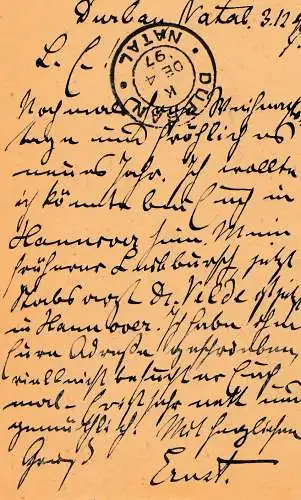 Durban Natal. 3.12.97
L. E.
DURBAN · NATAL ·
K
DE 4
97
Nochmals frohe Weihnachts
tage und fröhliches
neues Jahr. Ich wollte
ich könnte bei Euch in
Hannover sein. Mein
früherer Leibbursch, jetzt
Stabsarzt Dr. Velde ist jetzt
in Hannover. Ich habe ihm
Eure Adresse geschrieben,
vielleicht besucht er Euch
mal. Ist sehr nett und
gemüthlich. Mit herzlichem
Gruß
Ernst.